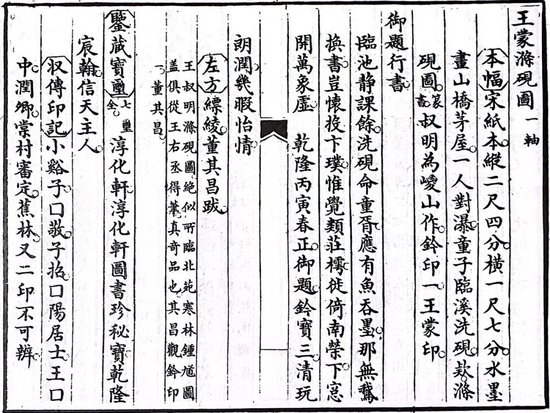 王蒙滌硯圖一軸
本幅宋紙本縱二尺四分橫一尺七分水墨
畫山橋茅屋一人對瀑童子臨溪洗硯款滌
硯圖篆書叔明為崚山作鈐印一王蒙印
御題行書
臨池靜課餘洗硯命童胥應有魚吞墨那無鵝
換書豈懷投卞璞惟覺類莊樗徙倚南榮下寥
開萬象虛乾隆丙寅春正御題鈐寶三清玩
朗潤幾暇怡情
左方縹綾董其昌跋
王叔明滌硯圖絶似所臨北苑寒林鍾馗圖
蓋俱從王右丞得筆真奇品也其昌觀鈐印
一董其昌
鑒藏寶璽七璽全淳化軒淳化軒圖書珍秘寶乾隆
宸翰信天主人
收傳印記小谿子口敬子招口陽居士王口
中潤卿棠村審定蕉林又二印不可辨